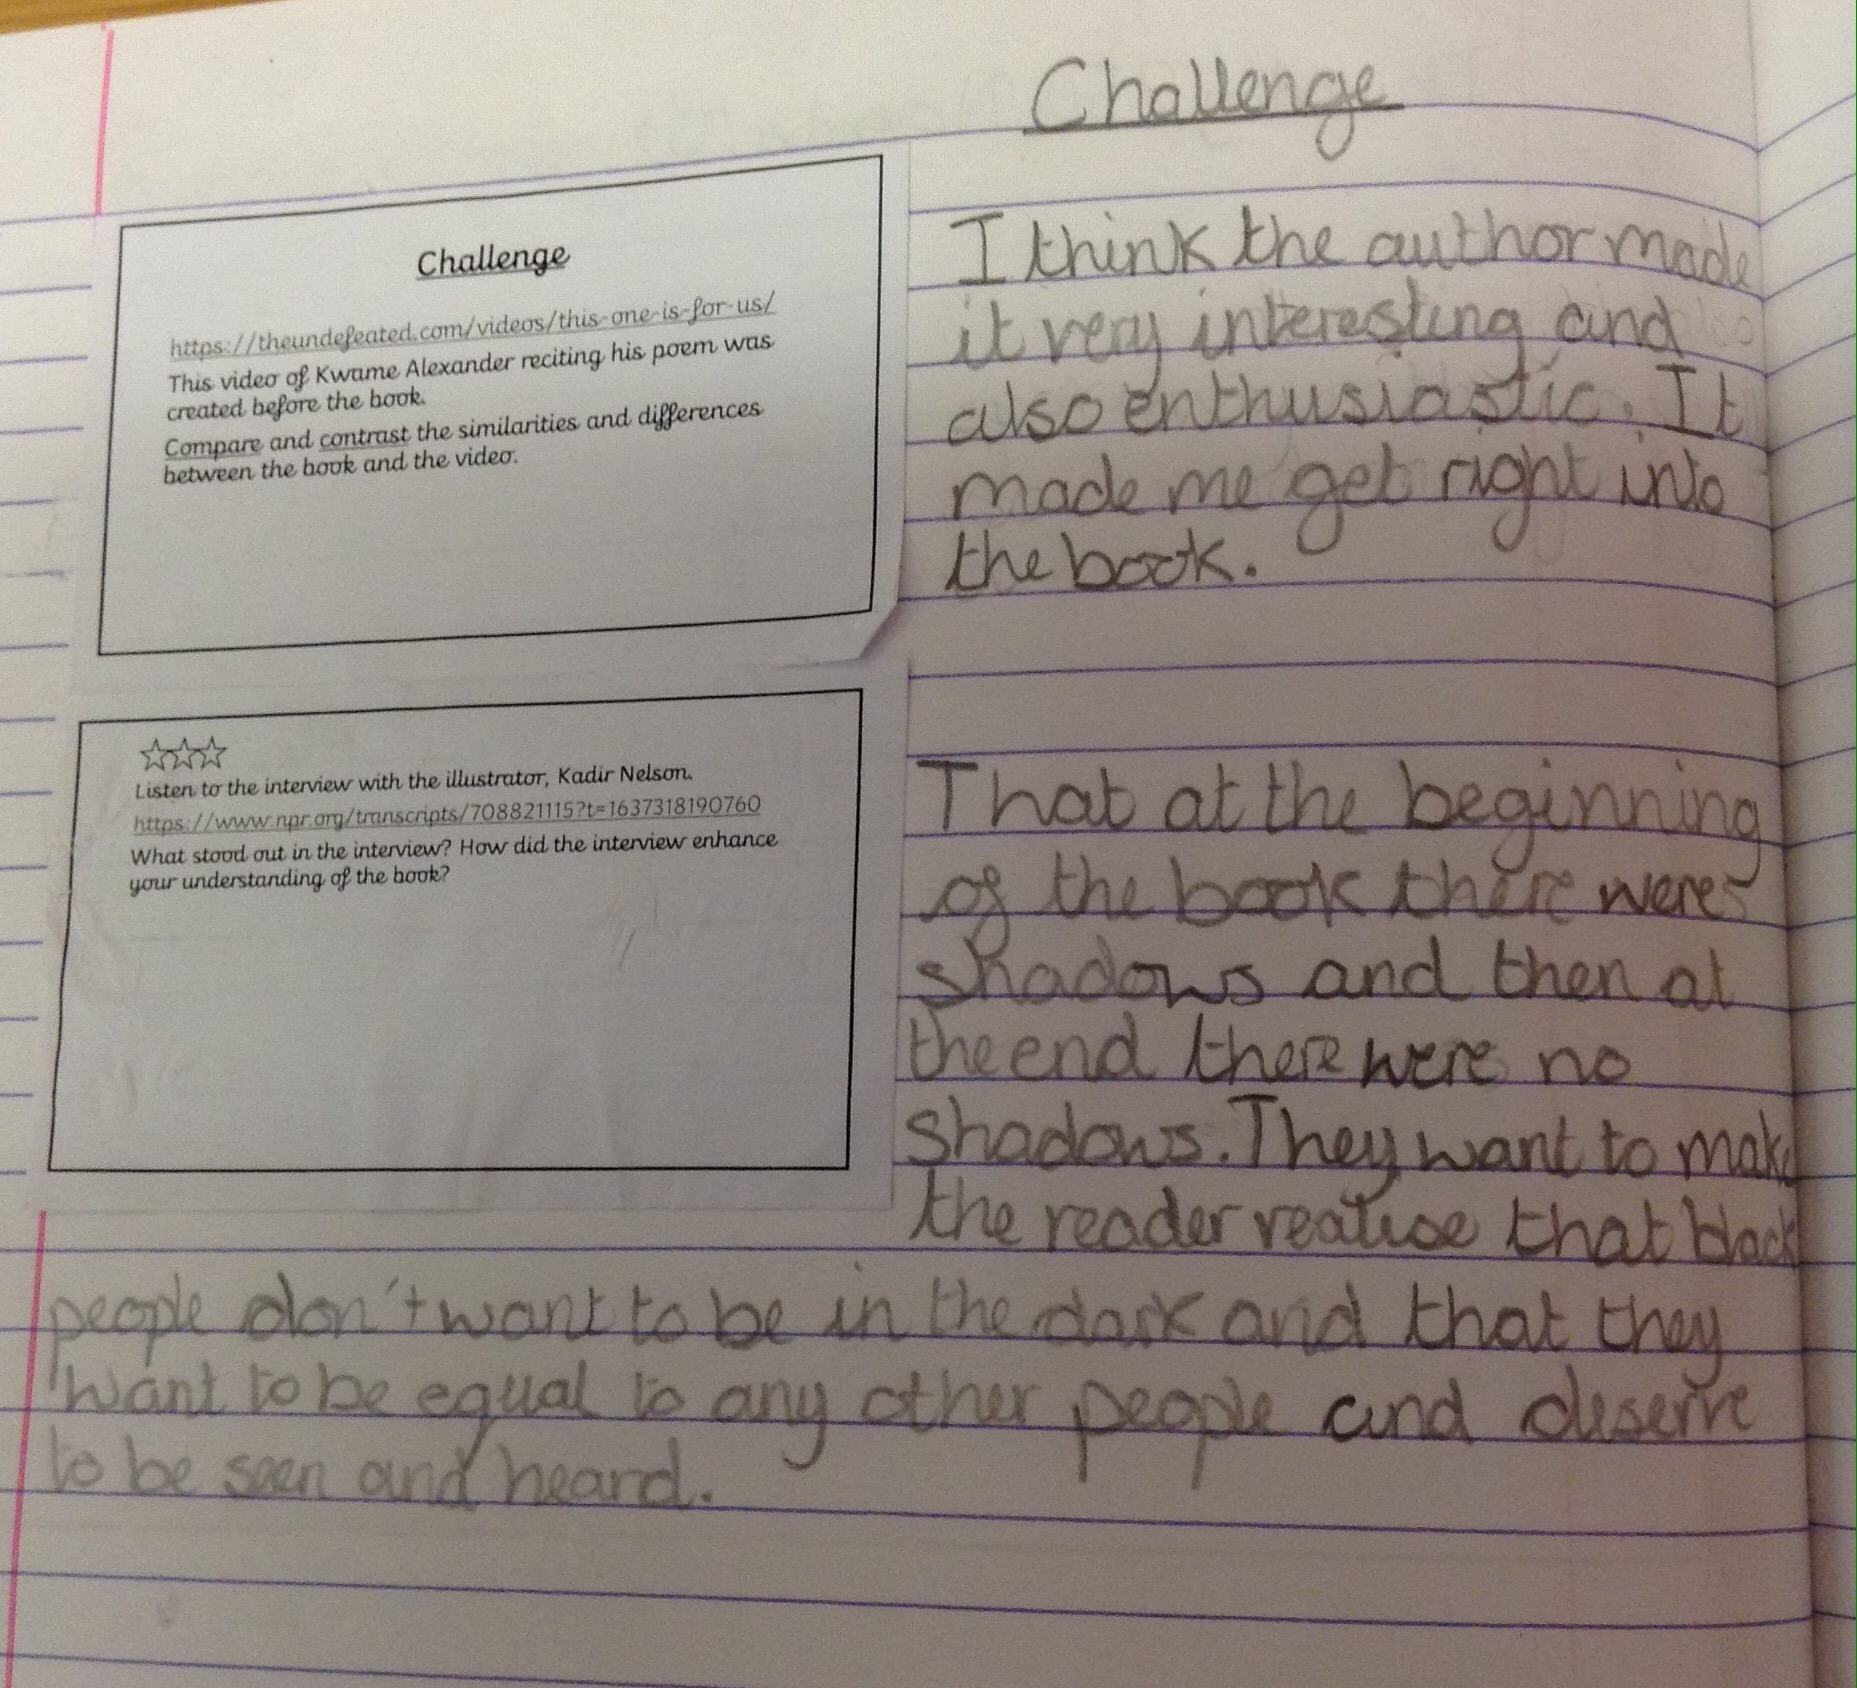 Challenge
Challenge
https://theundefeated.com/videos/this-one-is-for-us/
This video of Kwame Alexander reciting his poem was
created before the book.
Compare and contrast the similarities and differences
between the book and the video.
I think the author made
it very interesting and
also enthusiastic. It
made me get right into
the book.
☆☆☆
Listen to the interview with the illustrator, Kadir Nelson.
https://www.npr.org/transcripts/708821115?t=1637318190760
What stood out in the interview? How did the interview enhance
your understanding of the book?
That at the beginning
of the book there were
shadows and then at
the end there were no
shadows. They want to make
the reader realise that black
people don't want to be in the dark and that they
want to be equal to any other people and deserve
to be seen and heard.